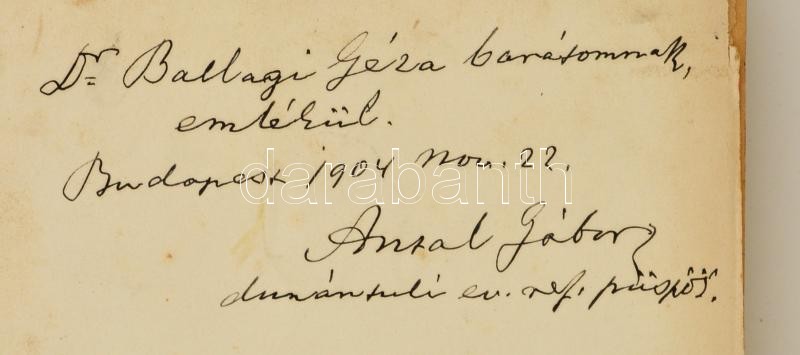 Dr Ballagi Géza barátomnak,
emlékül.
Budapest 1904 Nov. 22.
darabanth
Antal Gábor
dunántuli ev. ref. püspök.